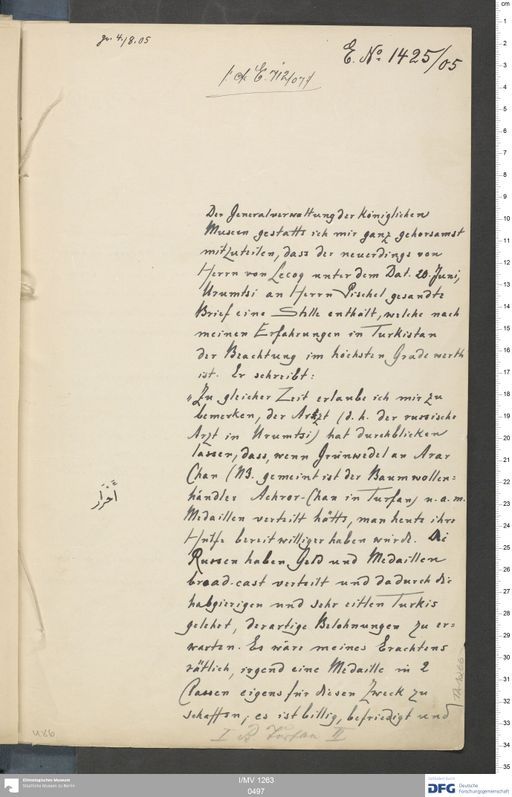 pr. 4./8.05
E. No 1425/05
f. d. E 712/07
Der Generalverwaltung der Königlichen
Museen gestatte ich mir ganz gehorsamst
mitzuteilen, dass der neuerdings von
Herrn von Lecoq unter dem Dat. 20. Juni,
Urumtsi an Herrn Pischel gesandte
Brief eine Stelle enthält, welche nach
meinen Erfahrungen in Turkistan
der Beachtung im höchsten Grade werth
ist. Er schreibt:
„Zu gleicher Zeit erlaube ich mir zu
bemerken, der Arzt (d. h. der russische
Arzt in Urumtsi) hat durchblicken
lassen, dass, wenn Grünwedel an Arar
Chan (NB. gemeint ist der Baumwollen=
händler Achror-Chan in Turfan) u. a. m.
أحرار
Medaillen verteilt hätte, man heute ihre
Hülfe bereitwilliger haben würde. Die
Russen haben Geld und Medaillen
broad-cast verteilt und dadurch die
habgierigen und sehr eitlen Turkis
gelehrt, derartige Belohnungen zu er=
warten. Es wäre meines Erachtens
rätlich, irgend eine Medaille in 2
Classen eigens für diesen Zweck zu
schaffen; es ist billig, befriedigt und
I B. Turfan II
I/MV 1263
0497
Ethnologisches Museum
Staatliche Museen zu Berlin
gefördert durch
DFG
Deutsche
Forschungsgemeinschaft